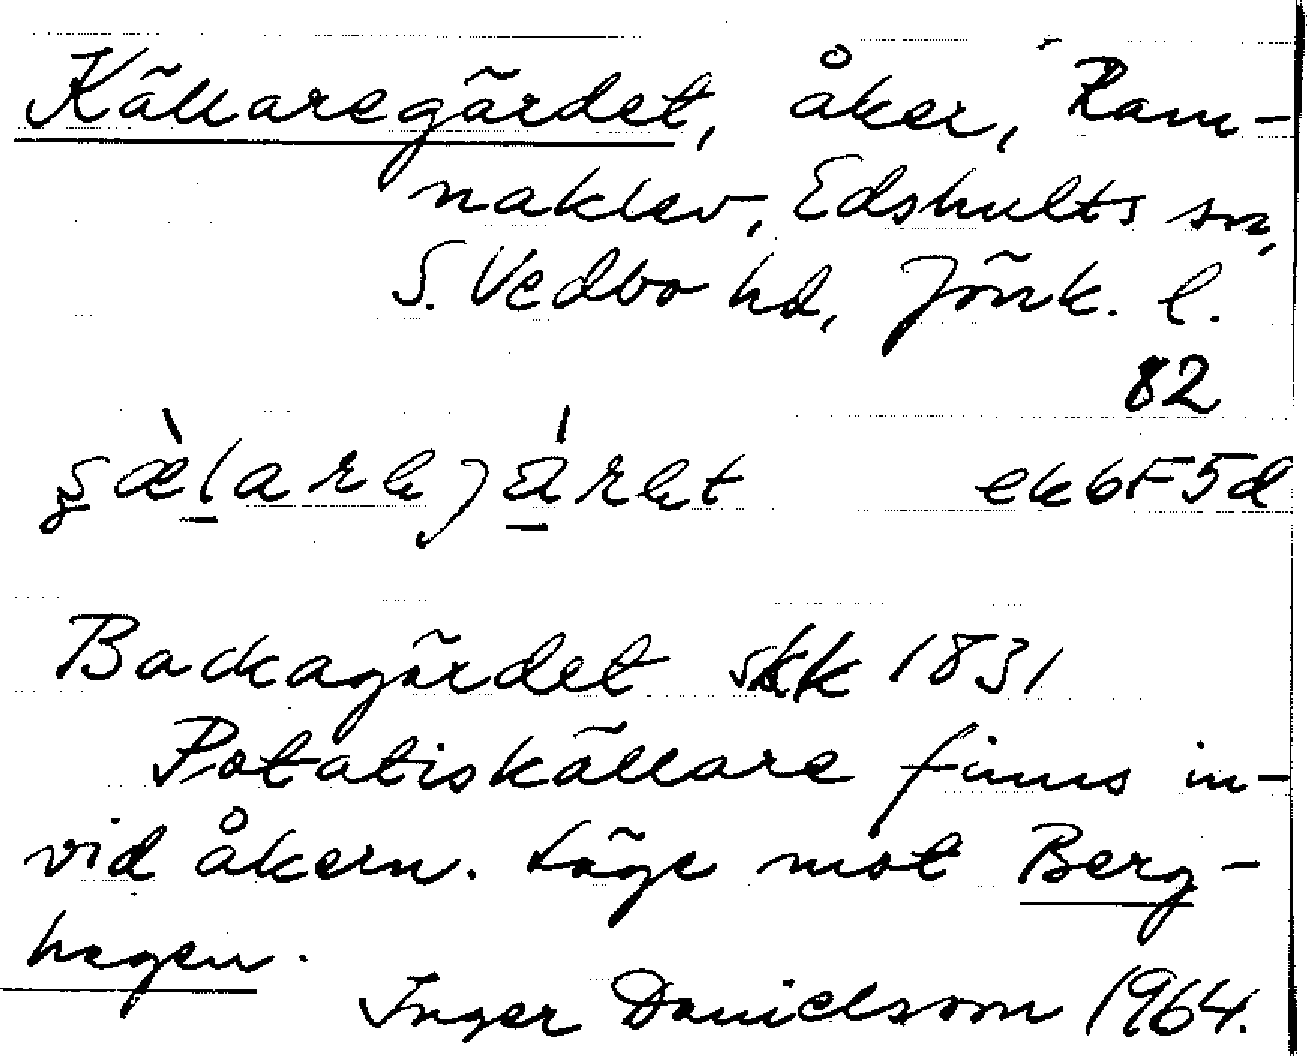 Källaregärdet, åker, Ram-
naklev, Edshults sn,
S. Vedbo hd, Jönk. l.
82
ekb F5d
Backagärdet skk 1831
Potatiskällare finns in-
vid åkern. Läge mot Berg-
hagen.
Inger Danielsson 1964.